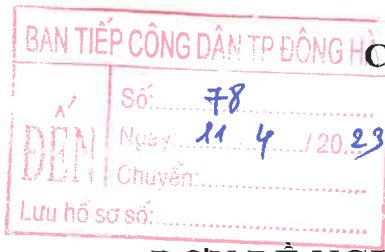 BAN TIẾP CÔNG DÂN TP ĐÔNG HÀ
ĐẾN
Số: 78
Ngày: 11 / 4 / 2023
Chuyển:
Lưu hồ sơ số: